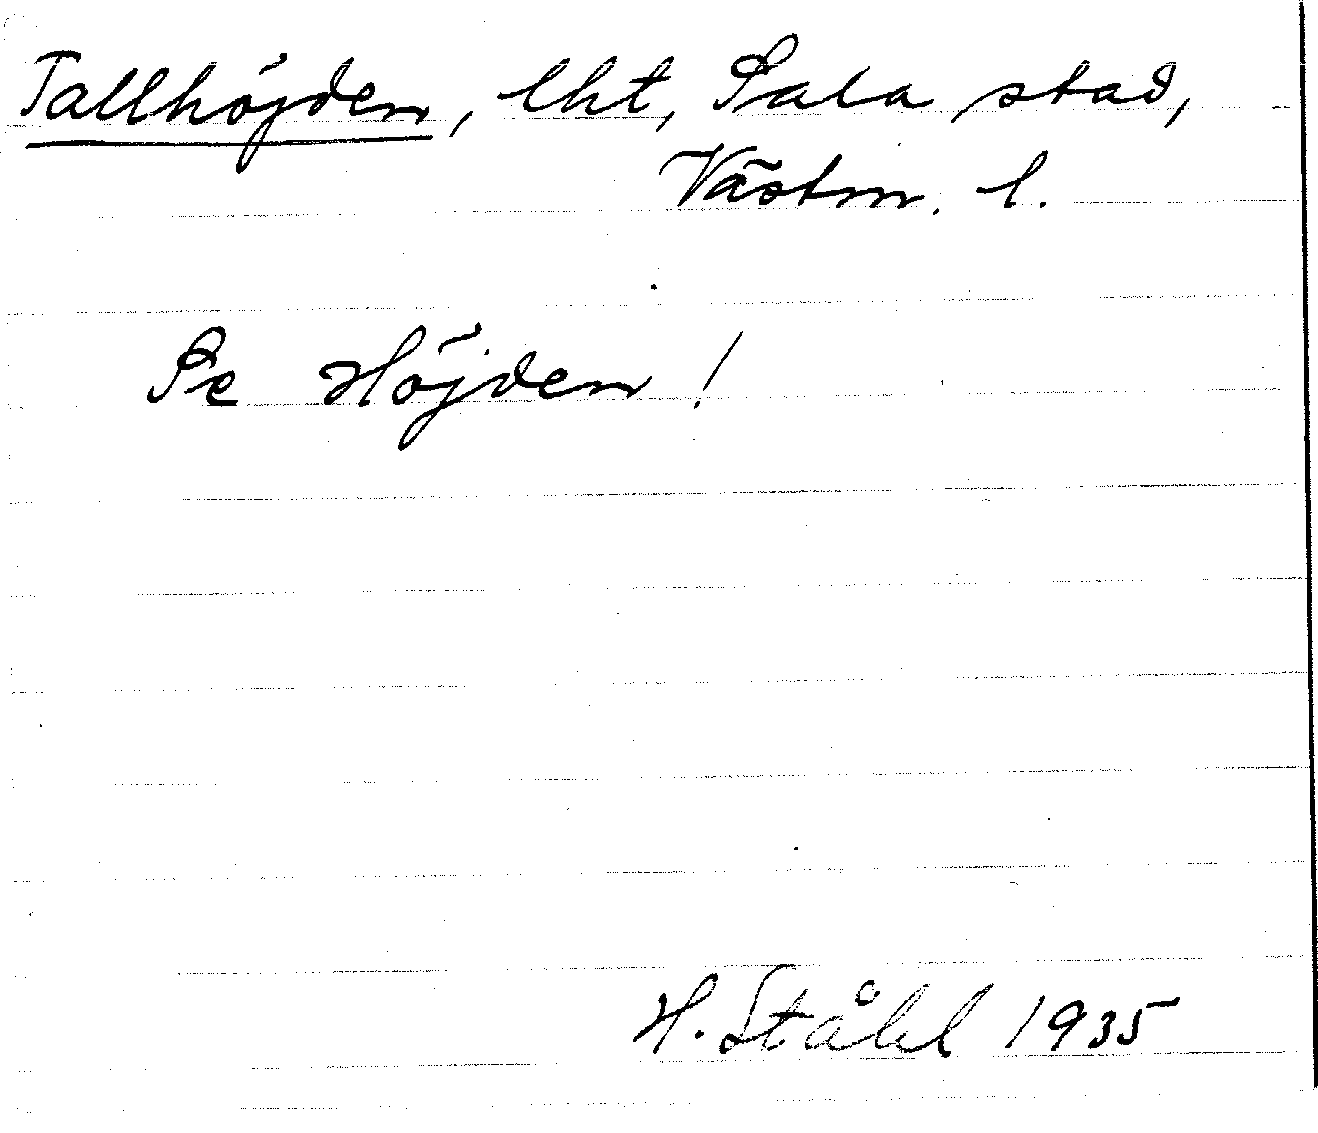 Tallhöjden, lht, Sala stad,
Västm. l.
Se Höjden!
H. Ståhl 1935